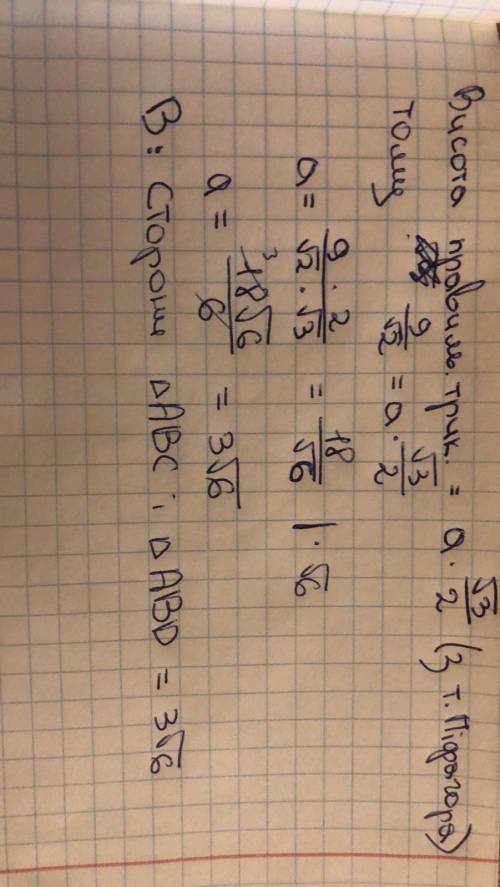 Висота правильн. трик. = a · √3/2 (з т. Піфагора)
тому 9/√2 = a · √3/2
a = 9 · 2/√2 · √3 = 18/√6 | · √6
a = 18√6/6 3 = 3√6
В: Сторони ΔABC і ΔABD = 3√6